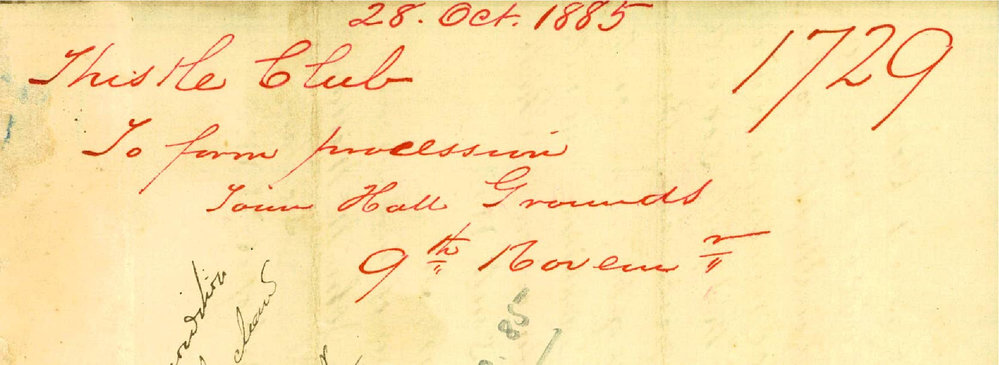 28. Oct. 1885
1729
Thistle Club
To form procession
Town Hall Grounds
9th Novem r
85